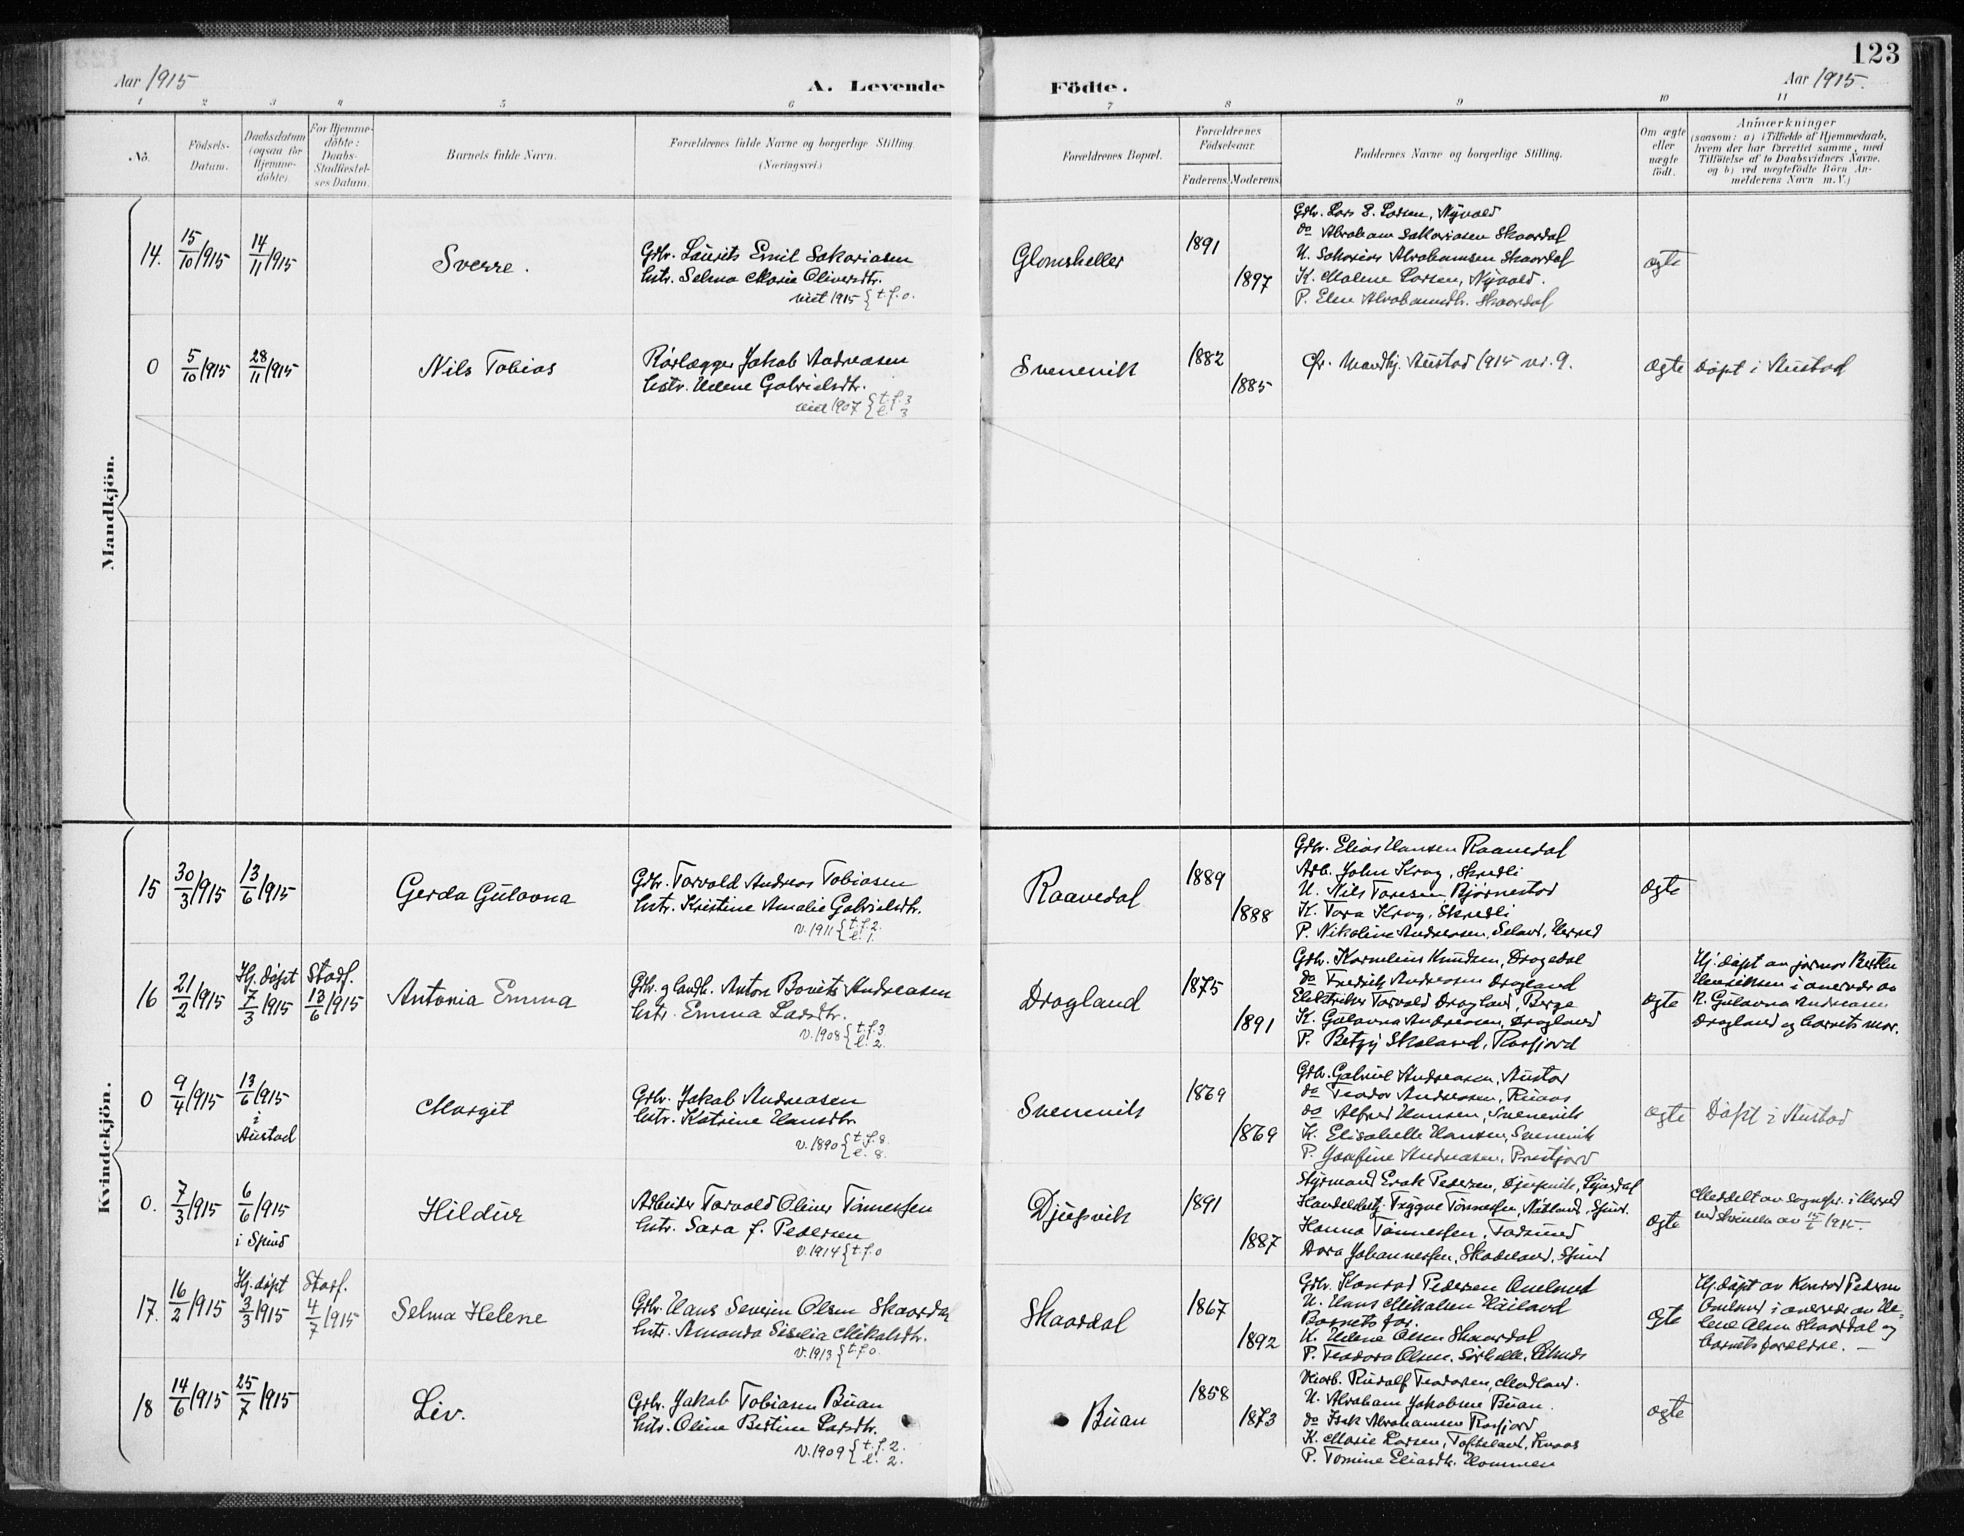 123
Aar 1915
A. Levende
Födte.
Aar 1915.
1 2 3 4 5 6 7 8 9 10 11
No.
Födsels-Datum.
Daabsdatum (ogsaa for Hjemme-döbte).
For Hjemme-döbte: Daabs-Stadfæstel-ses Datum.
Barnets fulde Navn.
Forældrenes fulde Navne og borgerlige Stilling. (Næringsvei.)
Forældrenes Bopæl.
Forældrenes Födselsaar.
Faderens. Moderens.
Faddernes Navne og borgerlige Stilling.
Om ægte eller uægte födt.
Anmærkninger
(saasom: a) i Tilfælde af Hjemmedaab, hvem der har forrettet samme, med Tilföielse af to Daabsvidners Navne, og b) ved uægtefödte Börn An-melderens Navn m. V.)
Mandkjön.
14. 15/10 1915 14/11 1915
Sverre.
Gdbr. Laurits Emil Sakariasen
hstr. Selma Marie Oliversdtr.
viet 1915 { t. f. 0.
Glomsheller
1891
1897
Gdbr. Lars E. Larsen, Nyvold
do Abraham Sakariasen Skaardal
U. Sakarias Abrahamsen Skaardal
K. Malene Larsen, Nyvold.
P. Elen Abrahamsdtr. Skaardal
ægte
0 5/10 1915 28/11 1915
Nils Tobias
Rørlægger Jakob Andreasen
hstr. Helene Gabrielsdtr.
viet 1907 { t. f. 3
l. 3
Svenevik
1882
1885
Cfr. Mandkj. Austad 1915 nr. 9.
ægte
Døpt i Austad
Kvindekjön.
15 30/3 1915 13/6 1915
Gerda Gulovna
Gdbr. Torvald Andreas Tobiasen
hstr. Kristine Amalie Gabrielsdtr.
v. 1911 { t. f. 2.
l. 1.
Raavedal
1889
1888
Gdbr. Elias Hansen Raavedal
Arb. John Krag, Skredli
U. Nils Toresen, Bjørnestad
K. Tora Krag, Skredli
P. Nikoline Andreasen, Seland, Herred
ægte
16 21/2 1915 Hj. døpt 7/3 1915 Stadf. 13/6 1915
Antonia Emma
Gdbr. g landh. Anton Bovits Andreasen
hstr. Emma Larsdtr.
v. 1908 { t. f. 3
l. 2.
Drogland
1875
1891
Gdbr. Kornelius Knudsen, Dragedal
do Fredrik Andreasen Drogland
Elektriker Torvald Drogland, Berge
K. Gulovna Andreasen, Drogland
P. Betzy Skoland, Rosfjord
ægte
Hj. døpt av jormor Berthe
Henriksen i anerver av
R. Gulovna Andreasen
Drogland og barnets mor.
0 9/4 1915 13/6 1915 i Austad
Margit
Gdbr. Jakob Andreasen
hstr. Katrine Hansdtr.
v. 1890 { t. f. 8.
l. 8.
Svenevik
1869
1869
Gdbr. Gabriel Andreasen, Austad
do Teodor Andreasen, Knaas
do Alfred Hansen, Svenevik
K. Elisabelle Hansen, Svenevik
P. Josefine Andreasen, Prestjord
ægte
Døpt i Austad
0. 7/3 1915 6/6 1915 i Spind
Hildur
Arbeider Torvald Oliver Tønnessen
hstr. Sara J. Pedersen
v. 1914 { t. f. 0
Djupvik
1891
1887
Styrmand Erak Pedersen, Djupvik,
Handelsbetj. Trygve Tønnessen,
Hanna Tønnessen,
Dora Johannessen, Skodeland, Spind
ægte
Meddelt av sognepr. i Herred
17. 16/2 1915 Hj. døpt 3/3 1915 Stadf. 4/7 1915
Selma Helene
Gdbr. Hans Severin Olsen Skaardal
hstr. Amanda Siselia Mikalsdtr.
v. 1913 { t. f. 0.
Skaardal
1867
1892
Gdbr. Konrad Pedersen Omlund
U. Hans Mikalsen Hailand
Barnets far.
K. Helene Olsen Skaardal
P. Teodora Olsen, Sørhelle,
ægte
Hj. døpt av Konrad Pedersen
Omlund i anerver av He-
lene Olsen Skaardal og
barnets forældre. —
18 14/6 1915 25/7 1915
Liv.
Gdbr. Jakob Tobiasen Buan
hstr. Oline Bertine Larsdtr.
v. 1909 { t. f. 2.
l. 2.
Buan
1858
1873
Rudolf Teodorsen, Modland.
U. Abraham Jakobsen Buan.
do Isak Abrahamsen Rosfjord
K. Marie Larsen, Tofteland, Knaas
P. Tomine Eliasdtr. Hommen
ægte